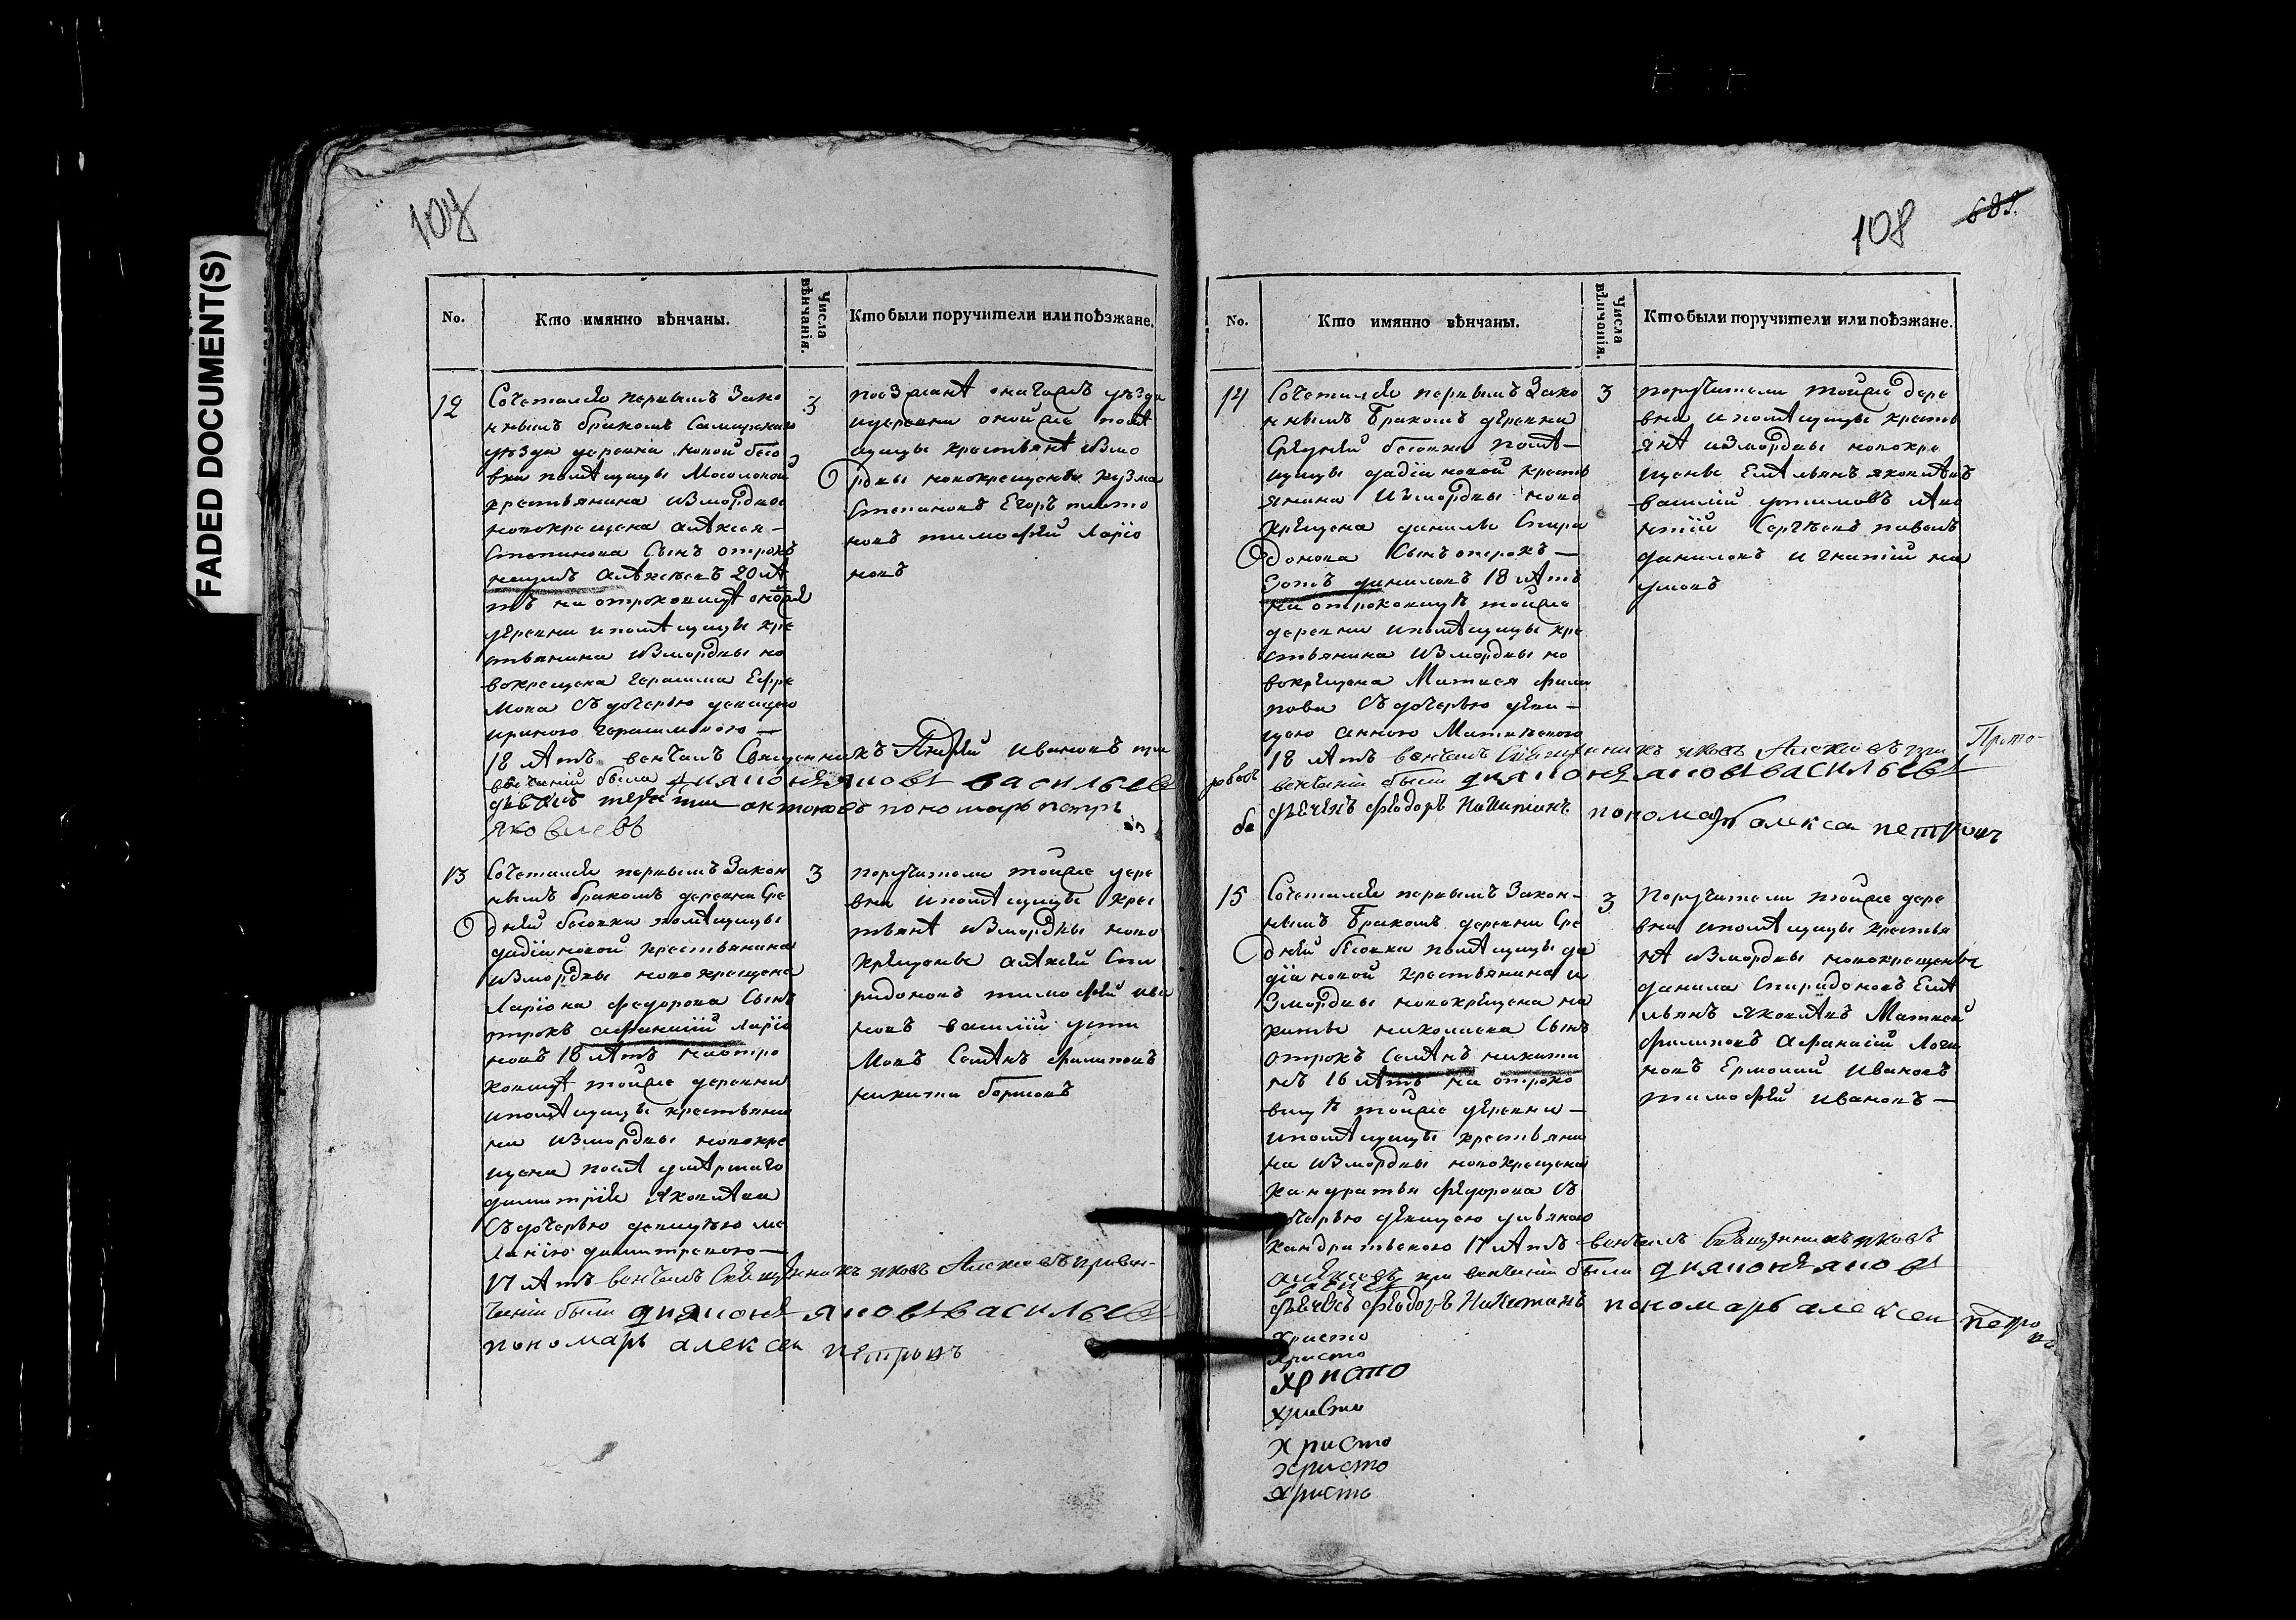 FADED DOCUMENT(S)
107
No.
Кто имянно вѣнчаны.
Числа вѣнчанія.
Кто были поручители или поѣзжане.
12
Сочетался первымъ зако
ннымъ бракомъ Самарскаго
уѣзда деревни новой бесо
вки помѣщицы Масоловой
крестьянина измордвы
новокрещена алѣксея
Степанова Сынъ отрокъ
наумъ алѣксѣевъ 20 лѣ
тъ на отроковицѣ оной же
деревни и помѣщицы кре
стьянина измордвы но
вокрещена герасима Ефре
мова съ дочерью девицею
ириною герасимовою
18 лѣтъ венчалъ Священникъ Андрей Ивановъ при
венчаніи были диаконъ яковъ васильевъ
пономарь петръ
яковлевъ
3
поезжанѣ
и деревни оной же помѣ
щицы крестьянѣ измо
рдвы новокрещены кузма
Степановъ Егоръ плато
новъ тимофей Ларіо
новъ
13
Сочетался первымъ закон
нымъ бракомъ деревни Сре
дней бесовки помѣщицы
дадіановой крестьянина
измордвы новокрещена
Ларіона федорова Сынъ
отрокъ афанасій Ларіо
новъ 18 лѣтъ на отро
ковицѣ тойже деревни
и помѣщицы крестьяни
на измордвы новокре
щена послѣ умѣршаго
димитрія яковлева
съ дочерью девицѣю ма
ланіею димитревою
17 лѣтъ венчалъ Священникъ яковъ Алексѣевъ при вен-
чаніи были диаконъ яковъ васильевъ
пономарь алексеи петровъ
3
поручители тойже дере
вни и помѣщицы крес
тьянѣ измордвы ново
крещены алѣксей Спи
ридоновъ тимофей ива
новъ василій усти
мовъ Семѣнъ филиповъ
никита борисовъ
108
689.
No.
Кто имянно вѣнчаны.
Числа вѣнчанія.
Кто были поручители или поѣзжане.
14
Сочетался первымъ зако
ннымъ бракомъ деревни
Средней бесовки помѣ
щицы дадіановой кресть
янина измордвы ново
крещена данилы Спири
донова Сынъ отрокъ
даниловъ 18 лѣтъ
на отроковицѣ тойже
деревни и помѣщицы кре
стьянина измордвы но
вокрещена Матвея фили
пова съ дочерью деви
цею анною Матвѣевою
18 лѣтъ венчалъ Священникъ яковъ Алексѣевъ при
венчаніи были диаконъ яковъ васильевъ
дьячекъ Феодоръ Никитинъ пономарь алексеи петровъ
3
поручители тойже дере
вни и помѣщицы кресть
янѣ измордвы новокре
щены Емѣльянъ яковлѣвъ
василій устимовъ лѣо
нтіи Сергѣевъ павелъ
даниловъ игнатій на
умовъ
15
Сочетался первымъ закон-
нымъ бракомъ деревни Сре
дней бесовки помѣщицы да
діановой крестьянина и
змордвы новокрещена ни
киты николаева Сынъ
отрокъ Семѣнъ никити
нъ 16 лѣтъ на отроко
вицѣ тойже деревни
и помѣщицы крестьяни
на измордвы новокрещена
кандратья федорова съ
дочерью девицею ульяною
кандратьевою 17 лѣтъ венчалъ Священникъ яковъ
алексѣевъ при венчаніи были диаконъ яковъ
дьячекъ Феодоръ Никитинъ пономарь алексеи петровъ
3
Поручители тойже дере
вни и помѣщицы крестья
нѣ измордвы новокрещены
данила Спиридоновъ Емѣ
льянъ яковлѣвъ Матвей
филиповъ афанасій Логи
новъ Ермолай Ивановъ
тимофей ивановъ
христо
христо
христо
христо
христо
христо
христо